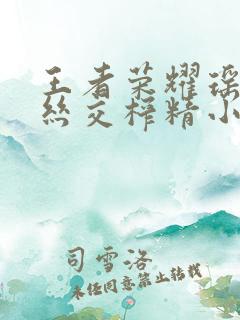 王者荣耀瑶
丝交榨精小
司雪洛
未经同意禁止转载